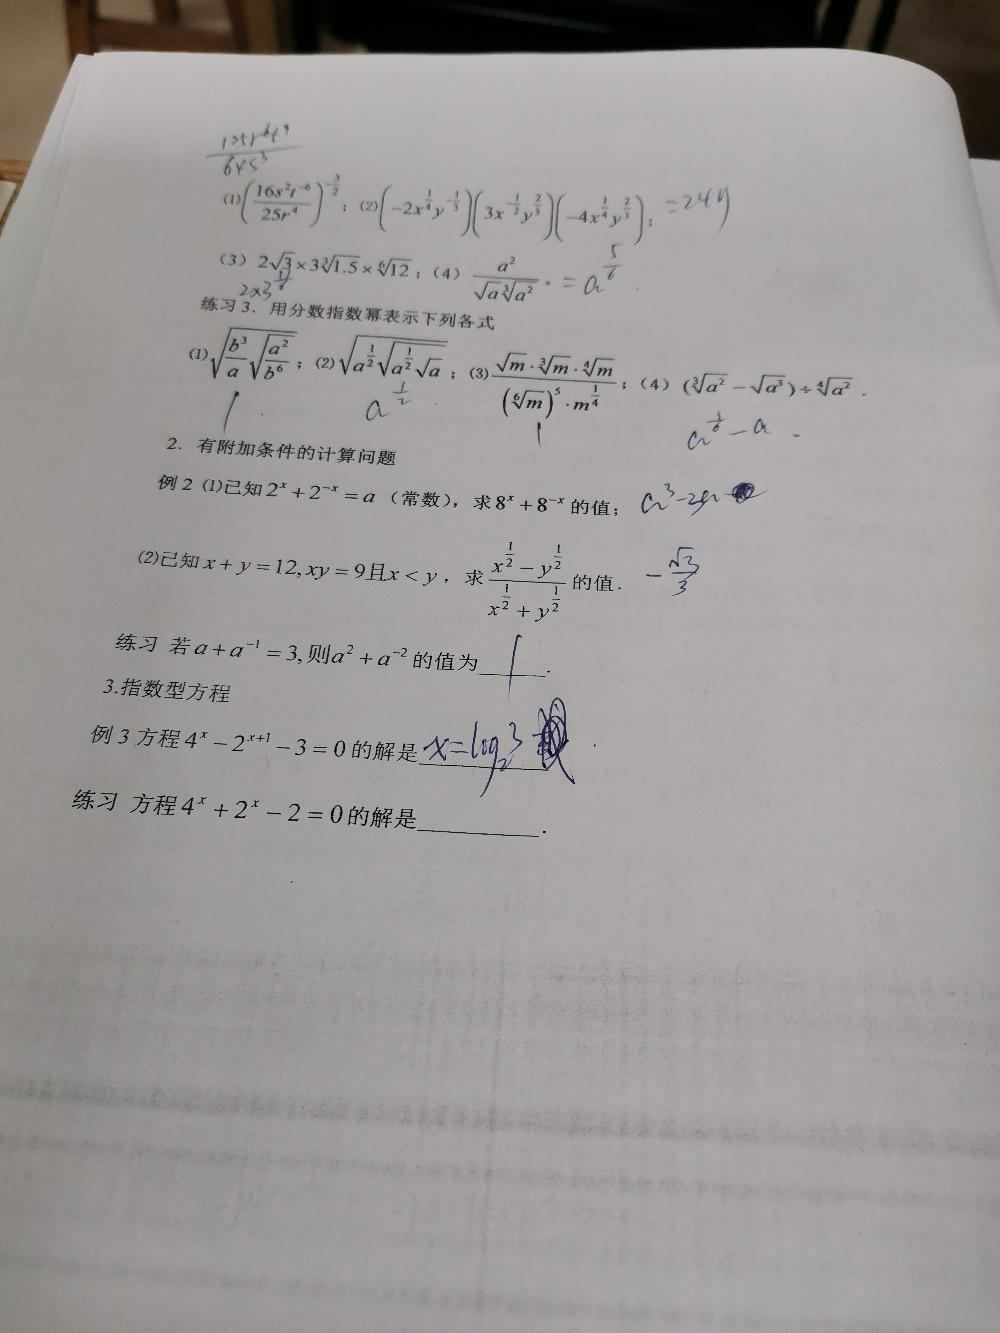 125r⁶t⁹/64s³
(1) (16s²t⁻⁶/25r⁴)^(-3/2)；(2) (-2x^(1/4)y^(-1/3))(3x^(-1/2)y^(2/3))(-4x^(1/4)y^(2/3))； =24y
(3) 2√3×3∛1.5×⁶√12；(4) a²/(√a∛a²)。 =a^(5/6)
练习3．用分数指数幂表示下列各式
(1) √(b³/a √(a²/b⁶))；(2) √(a^(1/2)√(a^(1/2)√a))；(3) (√m·∛m·⁴√m)/((⁶√m)⁵·m^(1/4))；(4) (∛a²－√a³)÷⁴√a²．
1 a^(1/2) 1 a^(1/6)－a．
2．有附加条件的计算问题
例2 (1)已知2ˣ+2⁻ˣ=a（常数），求8ˣ+8⁻ˣ的值；
(2)已知x+y=12,xy=9且x<y，求(x^(1/2)－y^(1/2))/(x^(1/2)+y^(1/2))的值． －√3/3
练习 若a+a⁻¹=3,则a²+a⁻²的值为______．
3.指数型方程
例3 方程4ˣ－2ˣ⁺¹－3=0的解是 x=log₂3
练习 方程4ˣ+2ˣ－2=0的解是__________．